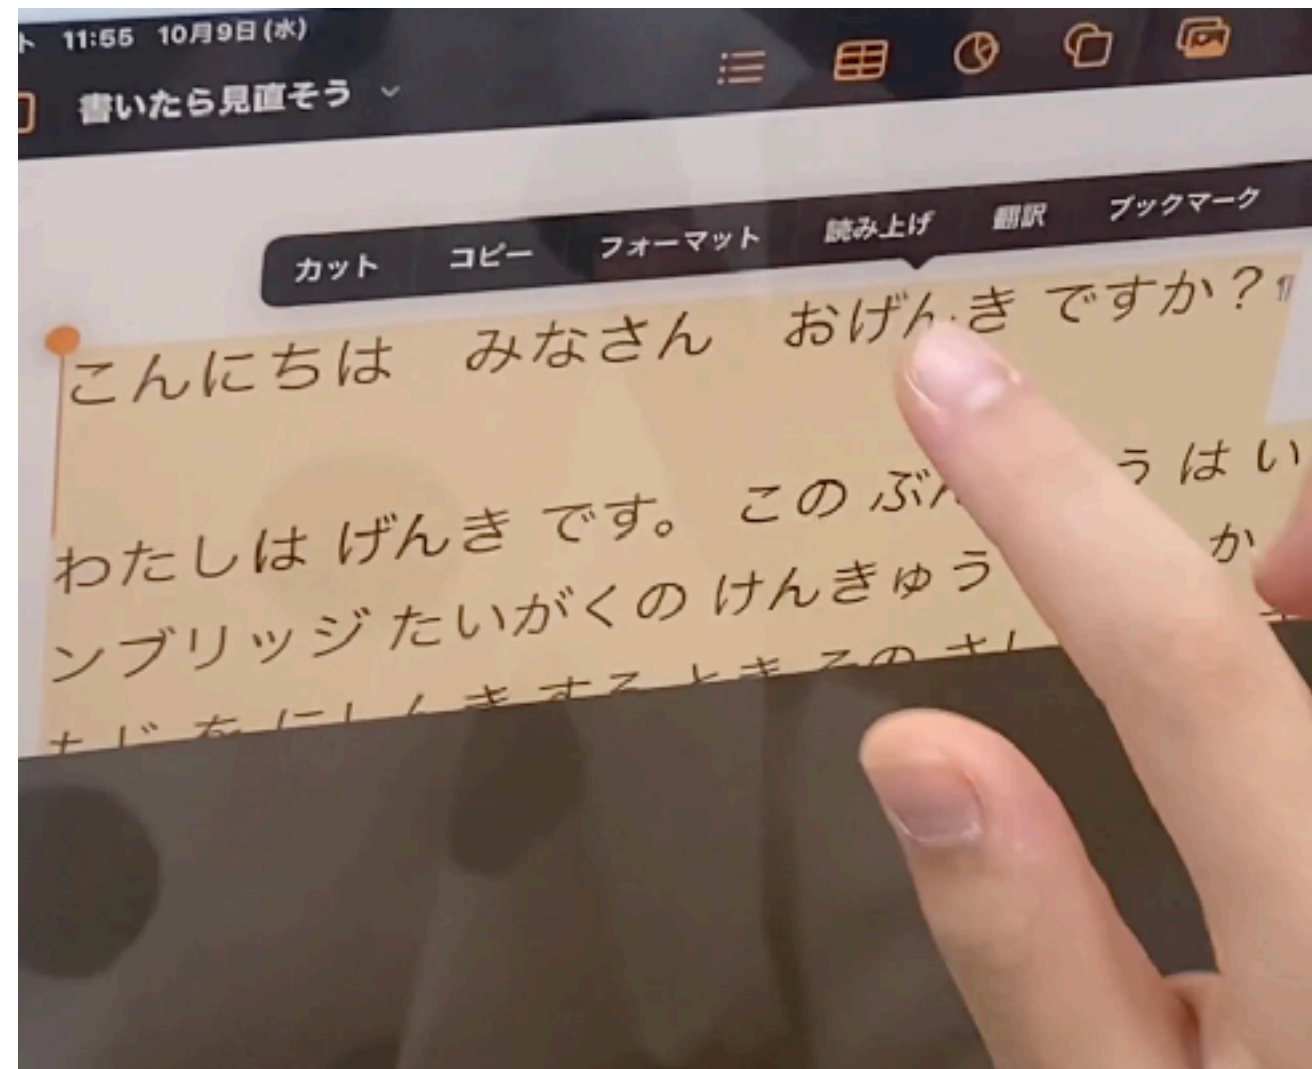 ト 11:55 10月9日(水)
書いたら見直そう
カット コピー フォーマット 読み上げ 翻訳 ブックマーク
こんにちは みなさん おげんき ですか?
わたしは げんき です。 この う は い
ンブリッジ たいがくの けんきゅう か
を にんしき する とき その